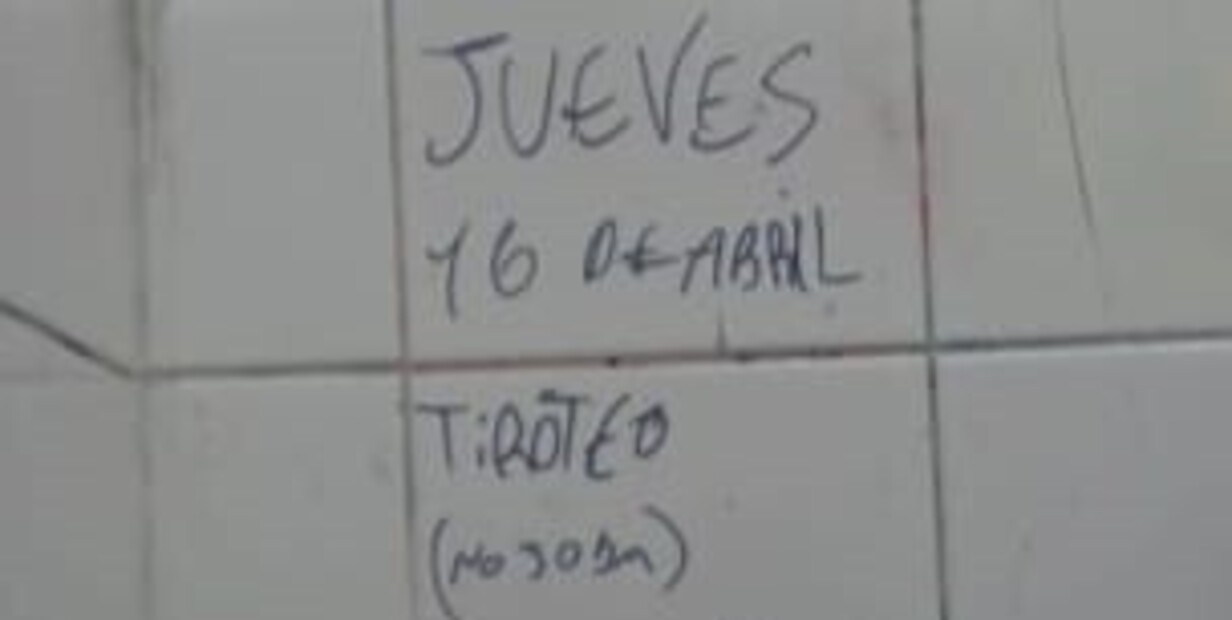 JUEVES
16 DE ABRIL
TiROTEO
(No JODA)